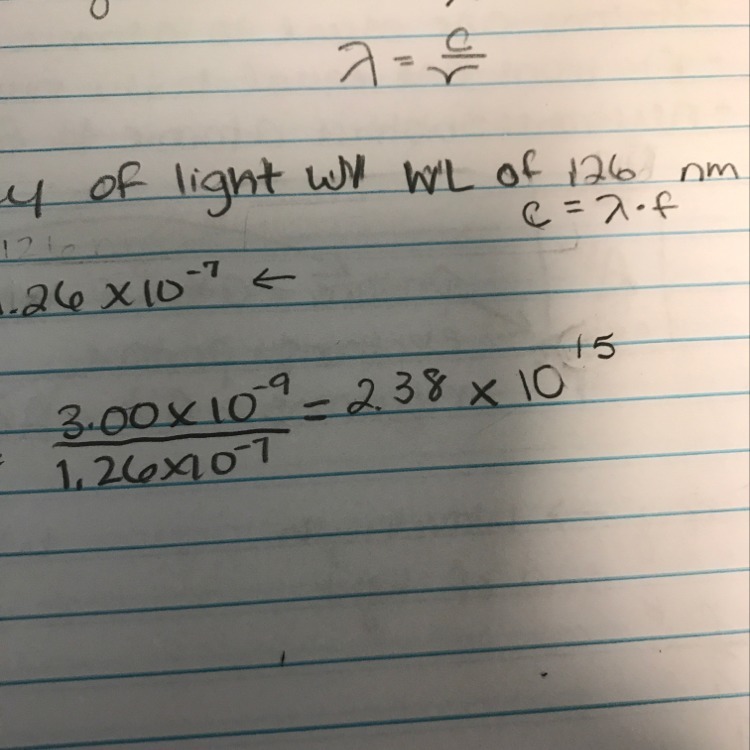 λ = c/ν
y of light w/ WL of 126 nm
c = λ · f
126
1.26 x 10⁻⁷ ←
3.00 x 10⁻⁹ / 1.26 x 10⁻⁷ = 2.38 x 10¹⁵